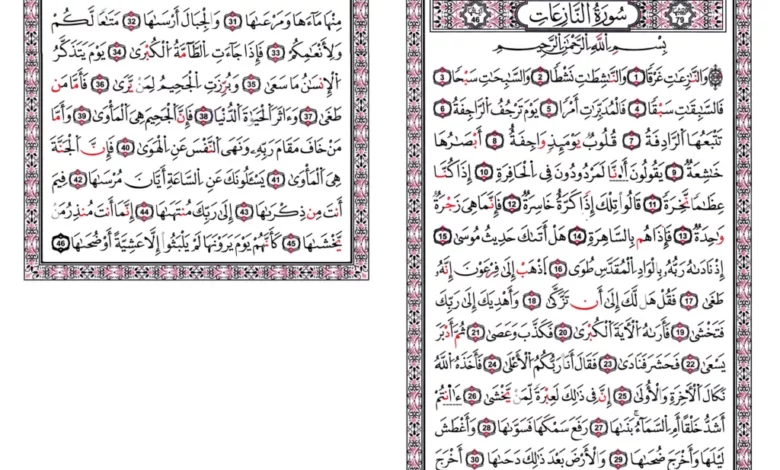 سُورَةُ النَّازِعَاتِ
79
46
بِسْمِ اللَّهِ الرَّحْمَٰنِ الرَّحِيمِ
وَالنَّازِعَاتِ غَرْقًا 1 وَالنَّاشِطَاتِ نَشْطًا 2 وَالسَّابِحَاتِ سَبْحًا 3
فَالسَّابِقَاتِ سَبْقًا 4 فَالْمُدَبِّرَاتِ أَمْرًا 5 يَوْمَ تَرْجُفُ الرَّاجِفَةُ 6
تَتْبَعُهَا الرَّادِفَةُ 7 قُلُوبٌ يَوْمَئِذٍ وَاجِفَةٌ 8 أَبْصَارُهَا
خَاشِعَةٌ 9 يَقُولُونَ أَءِنَّا لَمَرْدُودُونَ فِي الْحَافِرَةِ 10 إِذَا كُنَّا
عِظَامًا نَخِرَةً 11 قَالُوا تِلْكَ إِذًا كَرَّةٌ خَاسِرَةٌ 12 فَإِنَّمَا هِيَ زَجْرَةٌ
وَاحِدَةٌ 13 فَإِذَا هُم بِالسَّاهِرَةِ 14 هَلْ أَتَاكَ حَدِيثُ مُوسَىٰ 15
إِذْ نَادَاهُ رَبُّهُ بِالْوَادِ الْمُقَدَّسِ طُوًى 16 اذْهَبْ إِلَىٰ فِرْعَوْنَ إِنَّهُ
طَغَىٰ 17 فَقُلْ هَل لَّكَ إِلَىٰ أَن تَزَكَّىٰ 18 وَأَهْدِيَكَ إِلَىٰ رَبِّكَ
فَتَخْشَىٰ 19 فَأَرَاهُ الْآيَةَ الْكُبْرَىٰ 20 فَكَذَّبَ وَعَصَىٰ 21 ثُمَّ أَدْبَرَ
يَسْعَىٰ 22 فَحَشَرَ فَنَادَىٰ 23 فَقَالَ أَنَا رَبُّكُمُ الْأَعْلَىٰ 24 فَأَخَذَهُ اللَّهُ
نَكَالَ الْآخِرَةِ وَالْأُولَىٰ 25 إِنَّ فِي ذَٰلِكَ لَعِبْرَةً لِّمَن يَخْشَىٰ 26 ءَأَنتُمْ
أَشَدُّ خَلْقًا أَمِ السَّمَاءُ بَنَاهَا 27 رَفَعَ سَمْكَهَا فَسَوَّاهَا 28 وَأَغْطَشَ
لَيْلَهَا وَأَخْرَجَ ضُحَاهَا 29 وَالْأَرْضَ بَعْدَ ذَٰلِكَ دَحَاهَا 30 أَخْرَجَ
مِنْهَا مَاءَهَا وَمَرْعَاهَا 31 وَالْجِبَالَ أَرْسَاهَا 32 مَتَاعًا لَّكُمْ
وَلِأَنْعَامِكُمْ 33 فَإِذَا جَاءَتِ الطَّامَّةُ الْكُبْرَىٰ 34 يَوْمَ يَتَذَكَّرُ
الْإِنسَانُ مَا سَعَىٰ 35 وَبُرِّزَتِ الْجَحِيمُ لِمَن يَرَىٰ 36 فَأَمَّا مَن
طَغَىٰ 37 وَءَاثَرَ الْحَيَاةَ الدُّنْيَا 38 فَإِنَّ الْجَحِيمَ هِيَ الْمَأْوَىٰ 39 وَأَمَّا
مَنْ خَافَ مَقَامَ رَبِّهِ وَنَهَى النَّفْسَ عَنِ الْهَوَىٰ 40 فَإِنَّ الْجَنَّةَ
هِيَ الْمَأْوَىٰ 41 يَسْـَٔلُونَكَ عَنِ السَّاعَةِ أَيَّانَ مُرْسَاهَا 42 فِيمَ
أَنتَ مِن ذِكْرَاهَا 43 إِلَىٰ رَبِّكَ مُنتَهَاهَا 44 إِنَّمَا أَنتَ مُنذِرُ مَن
يَخْشَاهَا 45 كَأَنَّهُمْ يَوْمَ يَرَوْنَهَا لَمْ يَلْبَثُوا إِلَّا عَشِيَّةً أَوْ ضُحَاهَا 46